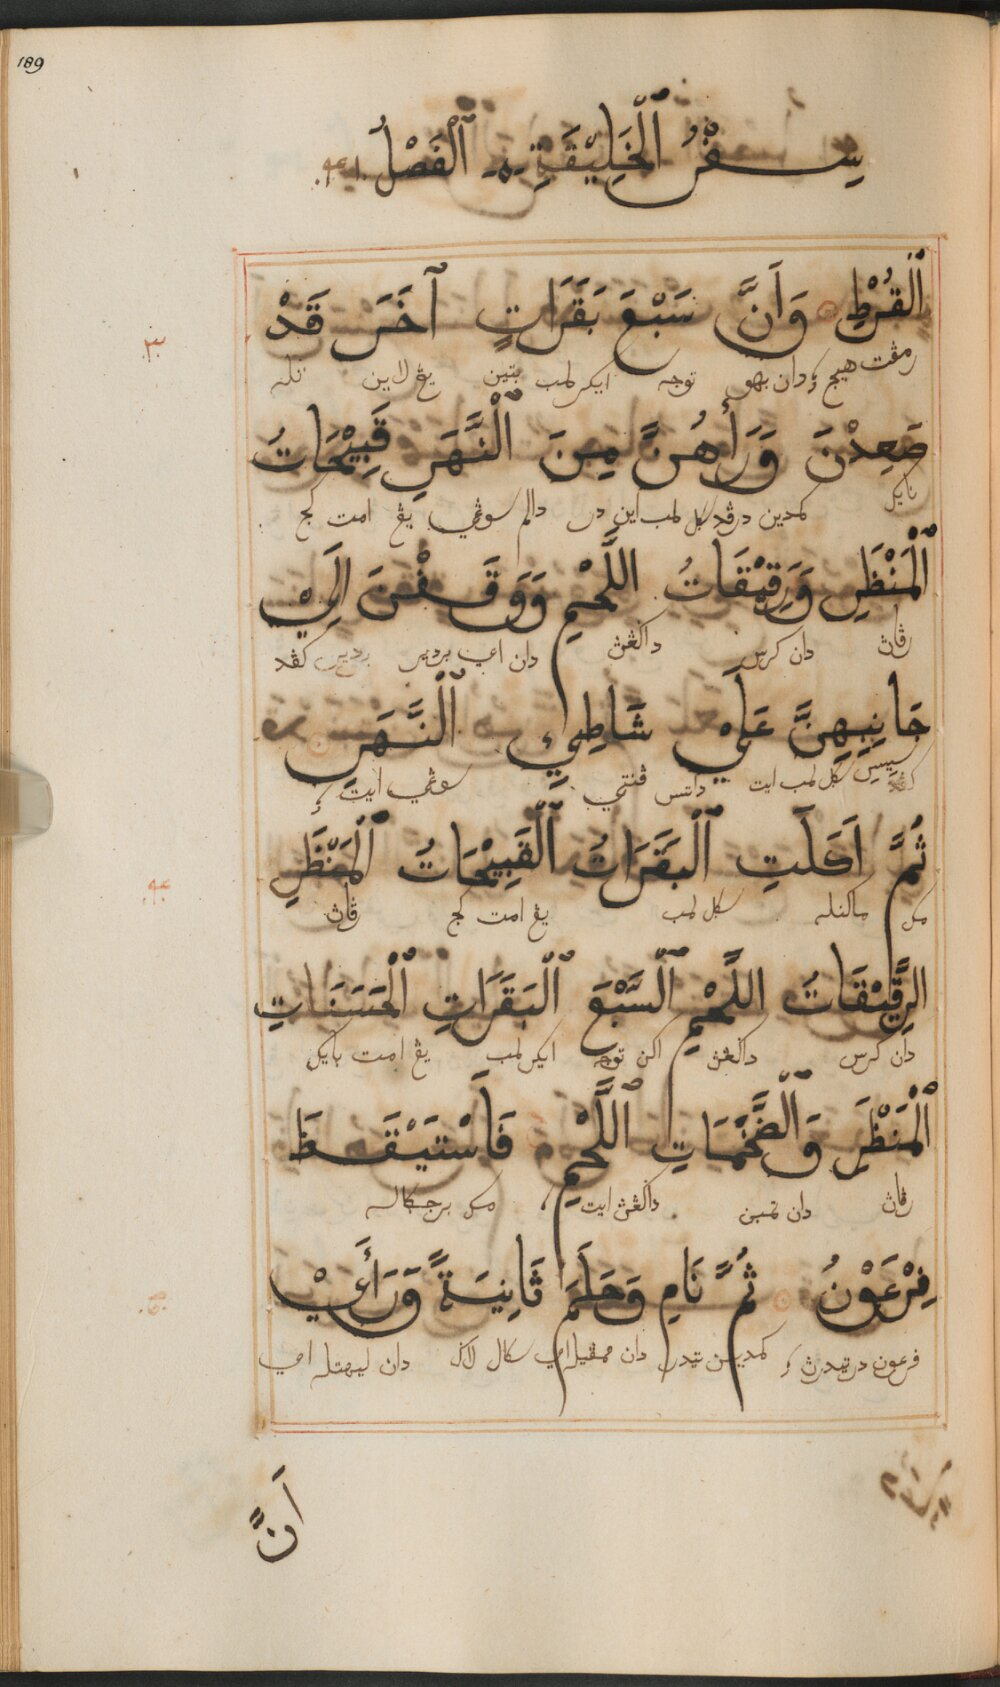 189
سِفْرُ ٱلْخَلِيْقَةِ ۞ ٱلْفَصْلُ ٤١
ٱلْقُرْطِ وَاَنَّ سَبْعَ بَقَرَاتٍ آخَرَ قَدْ
رمڤت هيجو دان بهو توجه ايكر لمب بتين يڠ لاين تله
٣
صَعِدْنَ وَرَأهُنَّ مِنَ ٱلْنَّهَرِ قَبِيْحَاتُ
نايک كمدين درڤد سكل لمب اين در دالم سوڠي يڠ امت كج
ٱلْمَنْظَرِ وَرَقِيْقَاتُ اللَّحْمِ وَوَقَفْنَ اِلَيْ
رڤاڽ دان كرس داڬڠڽ دان اي برديري كڤد
جَانِبِهِنَّ عَلَيْ شَاطِيءِ ٱلْنَّهَرِ
سيسي سكل لمب ايت داتس ڤنتي سوڠي ايت
ثُمَّ اَكَلَتِ ٱلْبَقَرَاتُ ٱلْقَبِيْحَاتُ ٱلْمَنْظَرِ
مک ماكنله سكل لمب يڠ امت كج رڤاڽ
٤
الرَّقِيْقَاتُ اللَّحْمِ ٱلسَّبْعَ ٱلْبَقَرَاتِ ٱلْحَسَنَاتِ
دان كرس داڬڠڽ اكن توجه ايكر لمب يڠ امت بايک
ٱلْمَنْظَرِ وَٱلْضَّخْمَاتِ ٱللَّحْمِ فَاَسْتَيْقَظَ
رڤاڽ دان تمبن داڬڠڽ ايت مک برجكاله
فِرْعَوْنُ ثُمَّ نَامِ وَحَلَمَ ثَانِيَةً وَرَأَيْ
٥
فرعون در تيدرڽ كمدين تيدر دان ممڤيله اي سكال لاڬ دان ليهتله اي
اَنَّ